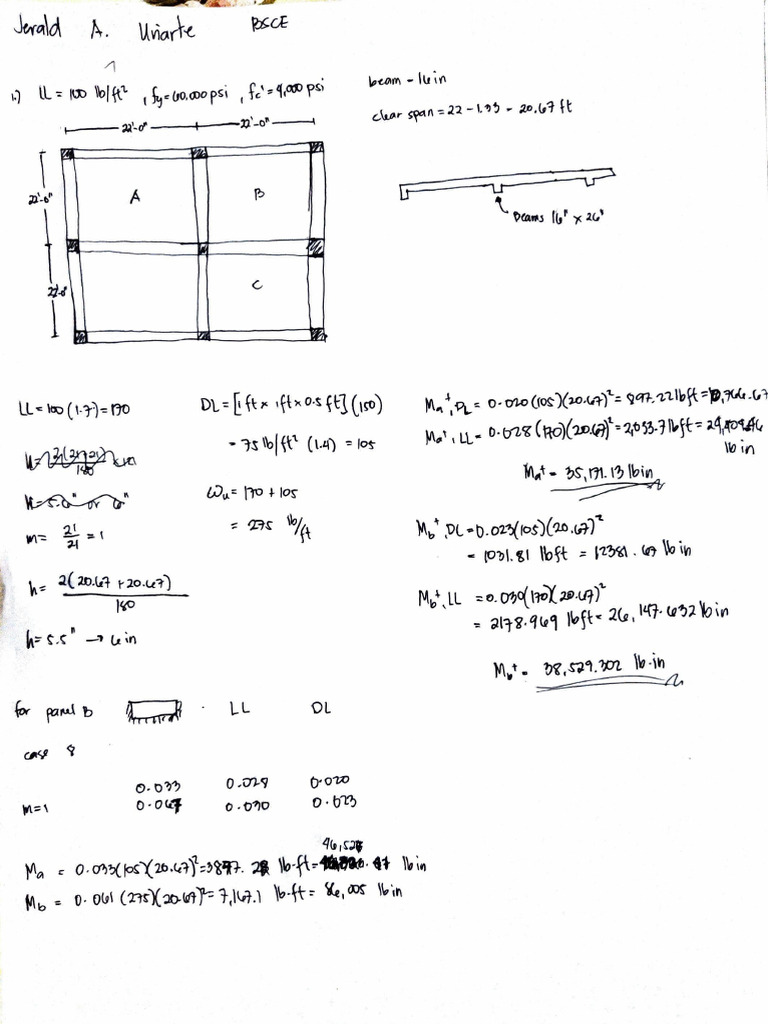 Jerald A. Uriarte BSCE
1.) LL = 100 lb/ft², fy = 60.000 psi, fc' = 4,000 psi
beam - 16 in
clear span = 22 - 1.33 - 20.67 ft
22'-0" 22'-0"
22'-0"
A B
22'-0"
C
Beams 16" x 26"
LL = 100 (1.7) = 170
h = 5.0" or 6"
m = 21/21 = 1
h = 2(20.67 + 20.67)/180
h = 5.5" → 6 in
DL = [1 ft x 1 ft x 0.5 ft] (150)
= 75 lb/ft² (1.4) = 105
Wu = 170 + 105
= 275 lb/ft
Ma⁺, DL = 0.020 (105)(20.67)² = 897.22 lbft = 10,766.67
Ma⁺, LL = 0.028 (170)(20.67)² = 2,033.7 lbft =
lb in
Ma⁺ = 35,171.13 lb in
Mb⁺, DL = 0.023 (105)(20.67)²
= 1031.81 lbft = 12381.67 lb in
Mb⁺, LL = 0.030 (170)(20.67)²
= 2178.969 lbft = 26,147.632 lb in
Mb⁺ = 38,529.302 lb-in
for panel B LL DL
case 8
0.033 0.028 0.020
m = 1 0.061 0.030 0.023
Ma = 0.033 (105)(20.67)² = lb-ft = 46,527 lb in
Mb = 0.061 (275)(20.67)² = 7,167.1 lb-ft = 86,005 lb in